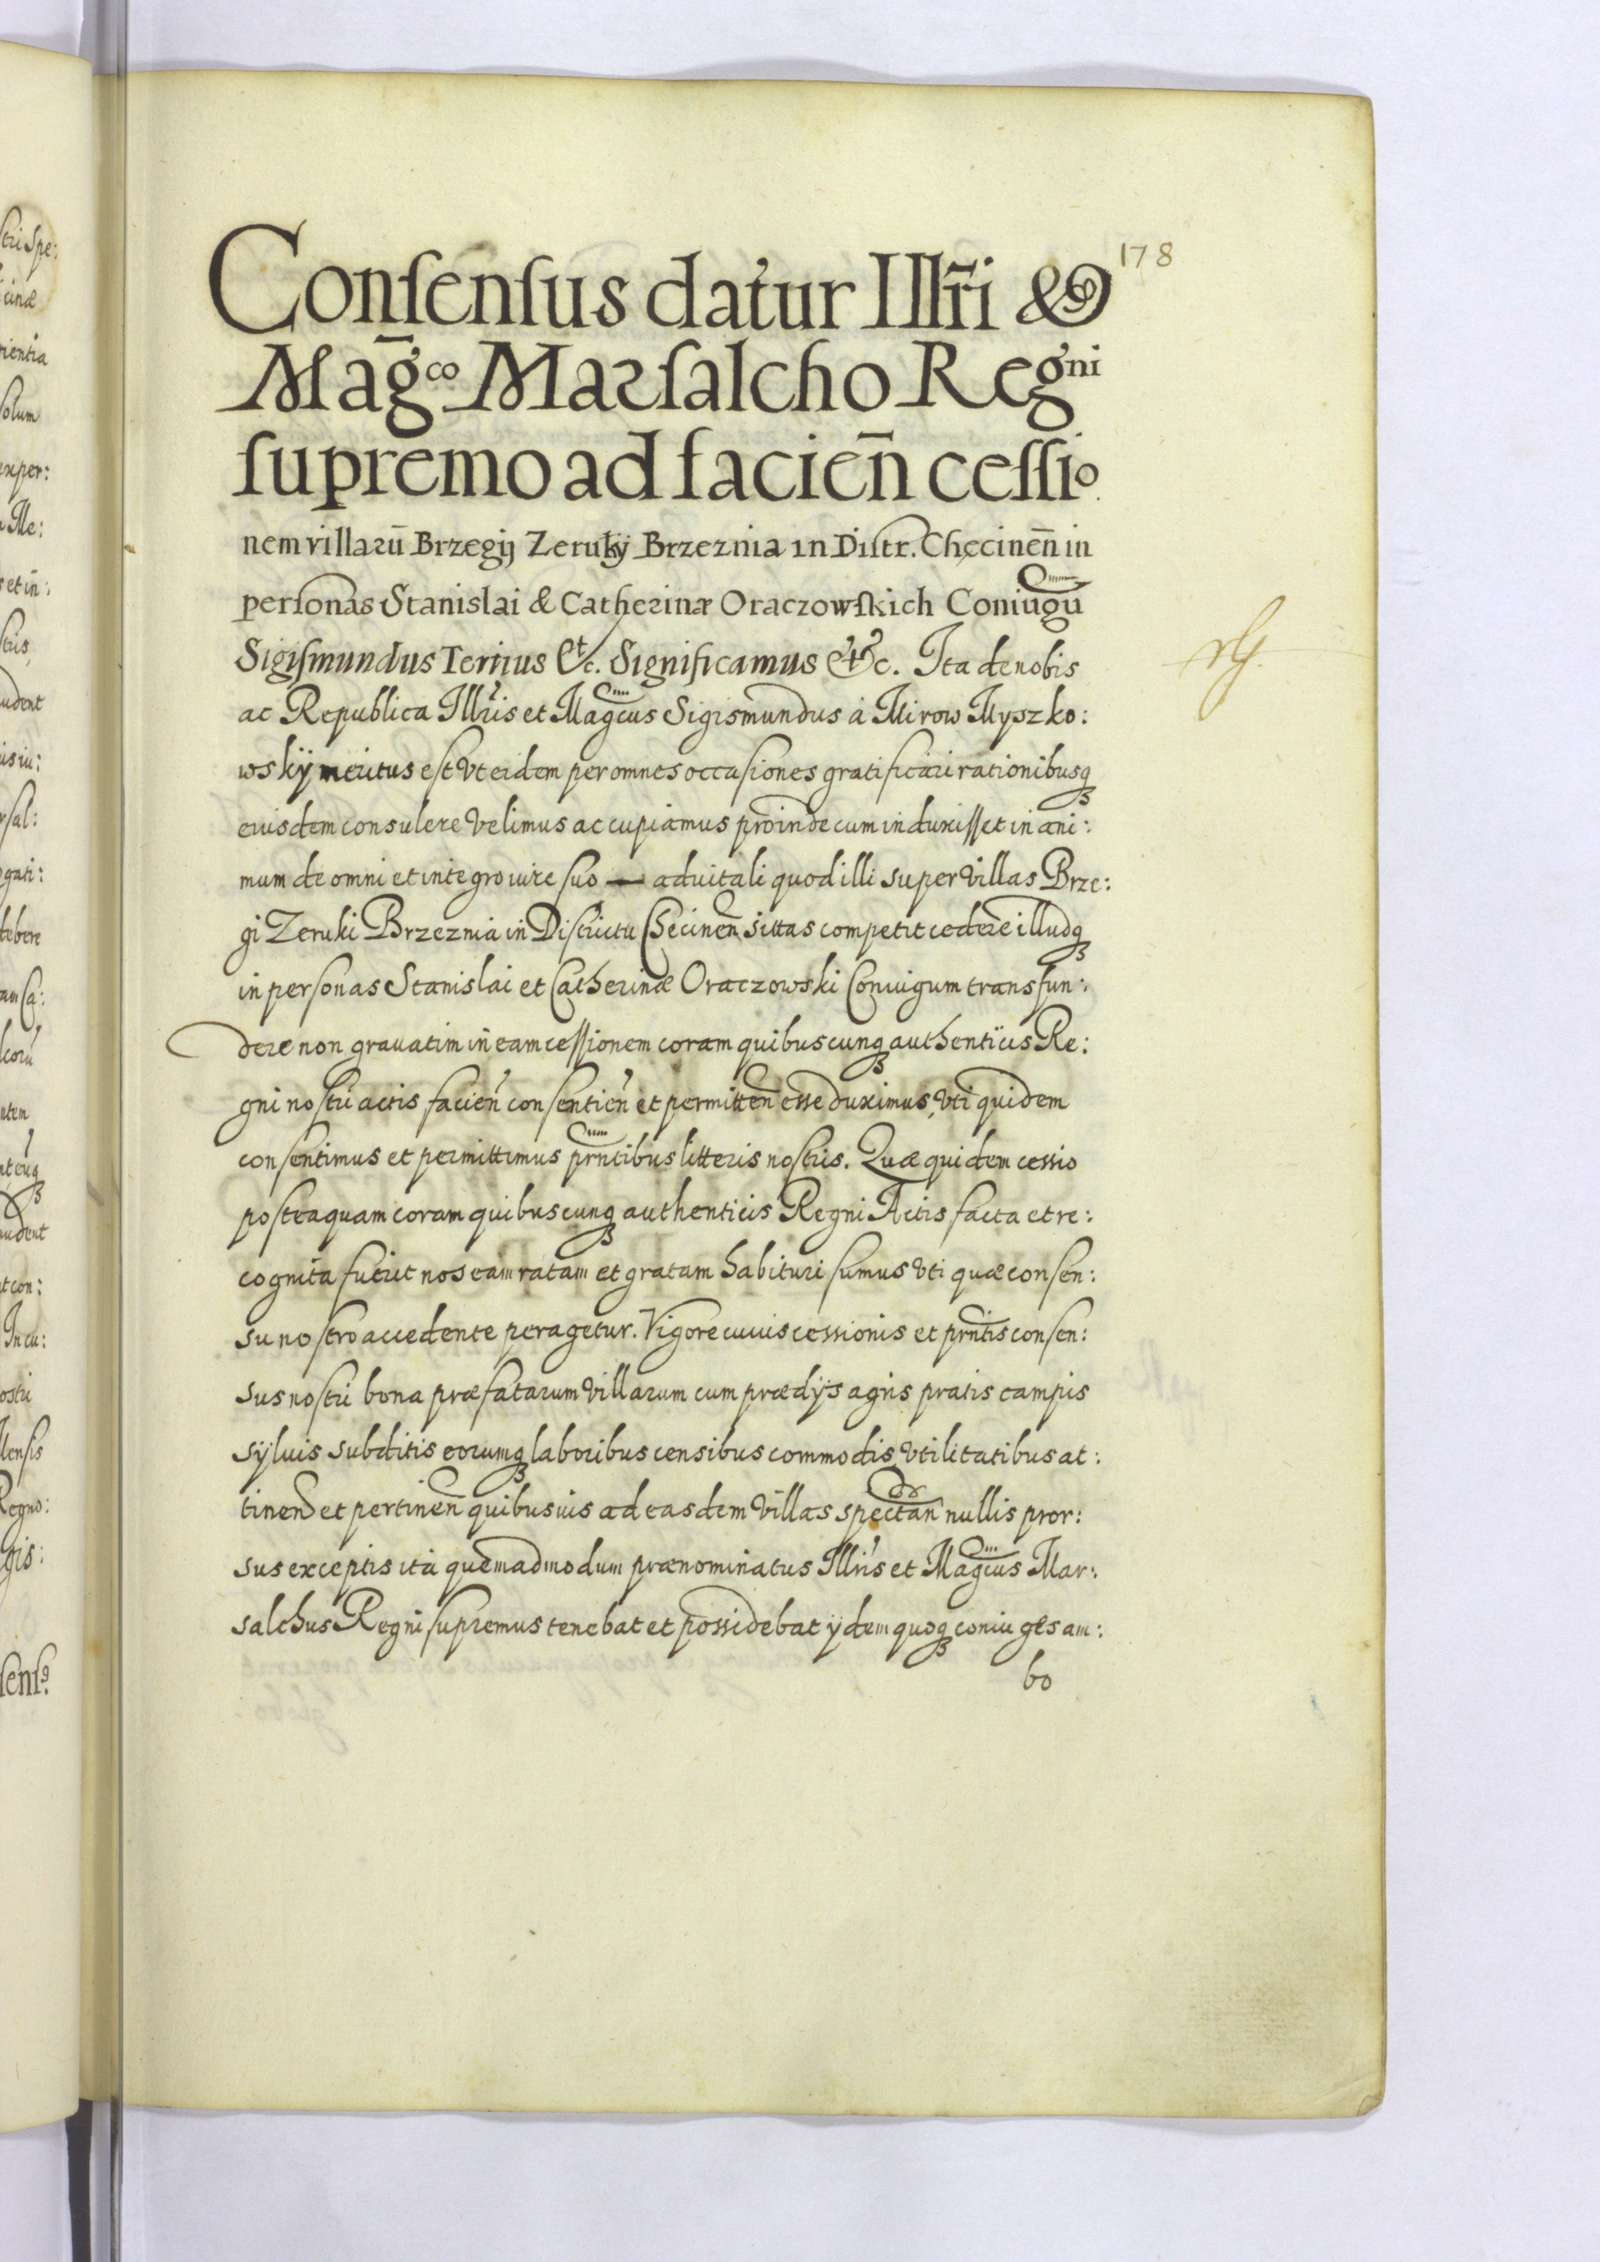 178
Consensus datur Illr̃i &
Mag̃co Marsalcho Regni
supremo ad facien̄ cessio
nem villarū Brzegij Zeruky Brzeznia in Distr. Checinen̄ in
personas Stanislai & Catherinæ Oraczowskich Coniugū
Sigismundus Tertius &tc. Significamus &tc. Ita de nobis
ac Republica Illris et Magcus Sigismundus à Mirow Myszko:
wskÿ meritus est Vt eidem per omnes occasiones gratificari rationibusq3
eiusdem consulere Velimus ac cupiamus proinde cum induxisset in ani:
mum de omni et integro iure suo — aduitali quod illi super Villas Brze:
gi Zeruki Brzeznia in Districtu Checinen̄ sittas competit cedere illudq3
in personas Stanislai et Catherinæ Oraczowski Coniugum transfun:
dere non grauatim in eam cessionem coram quibuscunq3 authenticis Re:
gni nostri actis facien̄ consentien̄ et permitten̄ esse duximus, Vti quidem
consentimus et permittimus prntibus litteris nostris. Quæ quidem cessio
posteaquam coram quibuscunq3 authenticis Regni Actis facta et re:
cognita fuerit nos eam ratam et gratam habituri sumus Vti quæ consen:
su nostro accedente peragetur. Vigore cuius cessionis et prntis consen:
sus nostri bona præfatarum Villarum cum prædijs agris pratis campis
syluis subditis eorumq3 laboribus censibus commodis Vtilitatibus at:
tinen̄ et pertinen̄ quibusuis ad easdem Villas spectan̄ nullis pror:
sus exceptis ità quemadmodum prænominatus Illris et Magcus Mar:
salchus Regni supremus tenebat et possidebat ÿdem quoq3 coniuges am:
bo